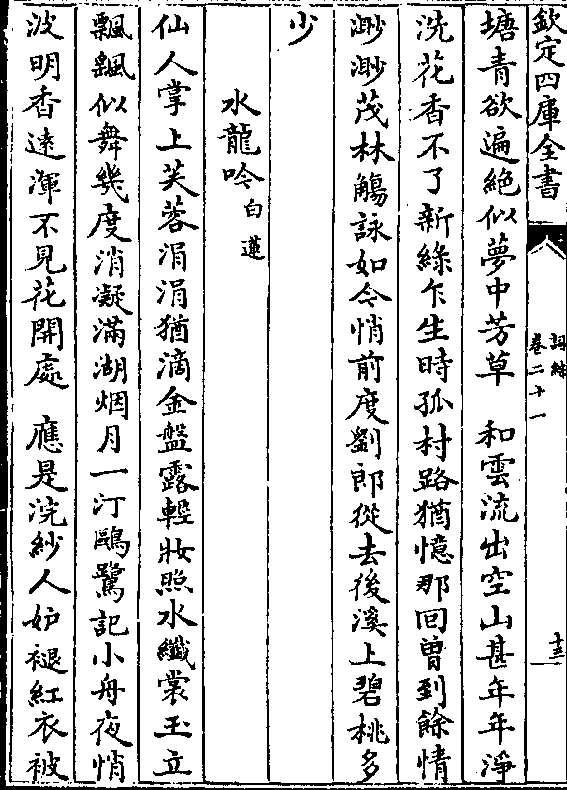 欽定四庫全書
詞綜
卷二十一
十三
塘青欲遍絶似夢中芳草　和雲流出空山甚年年淨
洗花香不了新綠乍生時孤村路猶憶那回曾到餘情
渺渺茂林觴詠如今悄前度劉郎從去後溪上碧桃多
少
水龍吟白蓮
仙人掌上芙蓉涓涓猶滴金盤露輕妝照水纖裳玉立
飄飄似舞幾度消凝滿湖烟月一汀鷗鷺記小舟夜悄
波明香遠渾不見花開處　應是浣紗人妒褪紅衣被